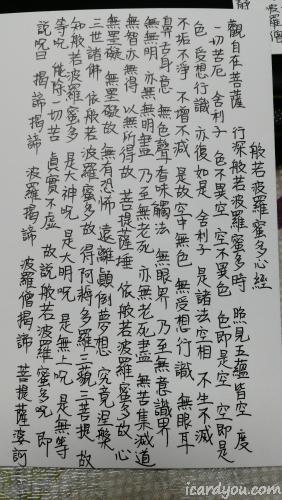 般若波羅蜜多心經
觀自在菩薩 行深般若波羅蜜多時 照見五蘊皆空 度
一切苦厄 舍利子 色不異空 空不異色 色即是空 空即是
色 受想行識 亦復如是 舍利子 是諸法空相 不生不滅
不垢不淨 不增不減 是故空中無色 無受想行識 無眼耳
鼻舌身意 無色聲香味觸法 無眼界 乃至無意識界
無無明 亦無無明盡 乃至無老死 亦無老死盡 無苦集滅道
無智亦無得 以無所得故 菩提薩埵 依般若波羅蜜多故 心
無罣礙 無罣礙故 無有恐怖 遠離顛倒夢想 究竟涅槃
三世諸佛 依般若波羅蜜多故 得阿耨多羅三藐三菩提 故
知般若波羅蜜多 是大神咒 是大明咒 是無上咒 是無等
等咒 能除一切苦 真實不虛 故說般若波羅蜜多咒 即
說咒曰 揭諦揭諦 波羅揭諦 波羅僧揭諦 菩提薩婆訶
icardyou.com